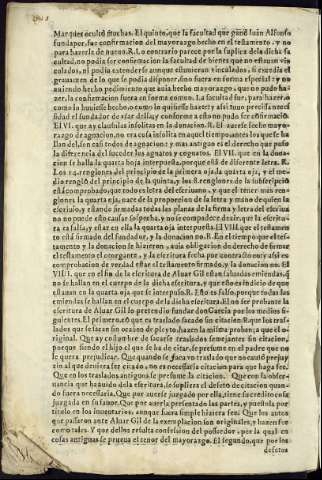 Marques ocultò muchas. El quinto, que la facultad que ganò Iuan Alfonso
fundador, fue confirmacion del mayorazgo hecho en el testamento, y no
para hazerle de nueuo. R. lo contrario parece por la suplica de la dicha fa-
cultad, no podia ser confirmacion la facultad de bienes que no estauan vin-
culados, ni podia entenderse aunque estuuieran vinculados, si excedia el
grauamen de lo que se podia disponer, sino fuera en forma especial: y no
auiendo hecho pedimiento que auia hecho mayorazgo, que no pudo ha-
zer, la confirmacion fuera en forma comun. La facultad fue, para hazer,
como si huuiesse hecho, o como si quisiesse hazer; y assi tuuo precisa nece-
sidad el fundador de vsar della, y conforme a esto no pudo ser confirmaciõ.
El VI. que ay clausulas insolitas en la donacion. R. El auerse hecho mayo-
razgo de agnacion, no era cosa insolita en aquel tiempo, antes los que se ha-
llan del, son casi todos de agnacion: y mas antiguo es el derecho que puso
la diferencia del suceder los agnatos y cognatos. El VII. que en la dona-
cion se halla la quarta hoja interpuesta, porque està de diferente letra. R.
Los 14. renglones del principio de la primera oja, la quarta oja, y el me-
dio renglon del principio de la quinta, y los 8. renglones de la subscripciõ
està comprobado, que todo es letra del escriuano, y que el tener mas ren-
glones la quarta oja, nace de la proporcion de la letra y mano de quien la
escriuio, y estando firmadas todas las planas de la firma y letra del escriua-
no no puede esto causar sospecha, y no se compadece dezir, que la escritu-
ra es falsa, y estar en ella la quarta oja interpuesta. El VIII. que el testamen-
to està firmado del fundador, y la donacion no. R. En el tiempo que el tes-
tamento y la donacion se hizieron, auia obligacion de derecho de firmar
el testamento el otorgante, y la escritura fecha por uno entre no: y assi es
comprobacion de verdad estar el testamento firmado, y la donacion no. El
VIIII. que en el fin de la escritura de Aluar Gil estan saluadas emiendas, q̃
no se hallan en el cuerpo de la dicha escritura, y que esto es indicio de que
estauan en la quarta oja que se interpuso. R. Esto es falso, porque todas las
emiendas se hallan en el cuerpo de la dicha escritura. El no ser probante la
escritura de Aluar Gil lo pretende fundar don Garcia por los medios si-
guientes. El primero, que es traslado sacado sin citacion. R. que los tras-
lados que se sacan sin ocasion de pleyto, hazen la misma proban̄ça que el o-
riginal. Que ay costumbre de sacarse traslados semejantes sin citacion,
no que siendo el hijo el que se ha de citar, presente en el padre que no
le quiera perjudicar. Que quando se saca vn traslado que no causò prejuy-
zio al que deuiera ser citado, no es necessaria citacion para que haga fee.
Que en los traslados antiguos se presume la citacion. Que con la obser-
uancia que ha auido dela escritura, se supliera el defeto de citacion quan-
do fuera necessaria. Que por auerse juzgado por ella, tiene fee credito cosa
juzgada en su fauor. Que por auerla presentado las partes, y puesto la por
titulo en los inuentarios, aunque fuera simple hiziera fee. Que los autos
que passaron ante Aluar Gil de la exemplacion son originales, y hazen fee
como tales. Y que dellos resulta confession del possessor, por la qual en
cosas antiguas se prueua el tenor del mayorazgo. El segundo, que por los
defetos